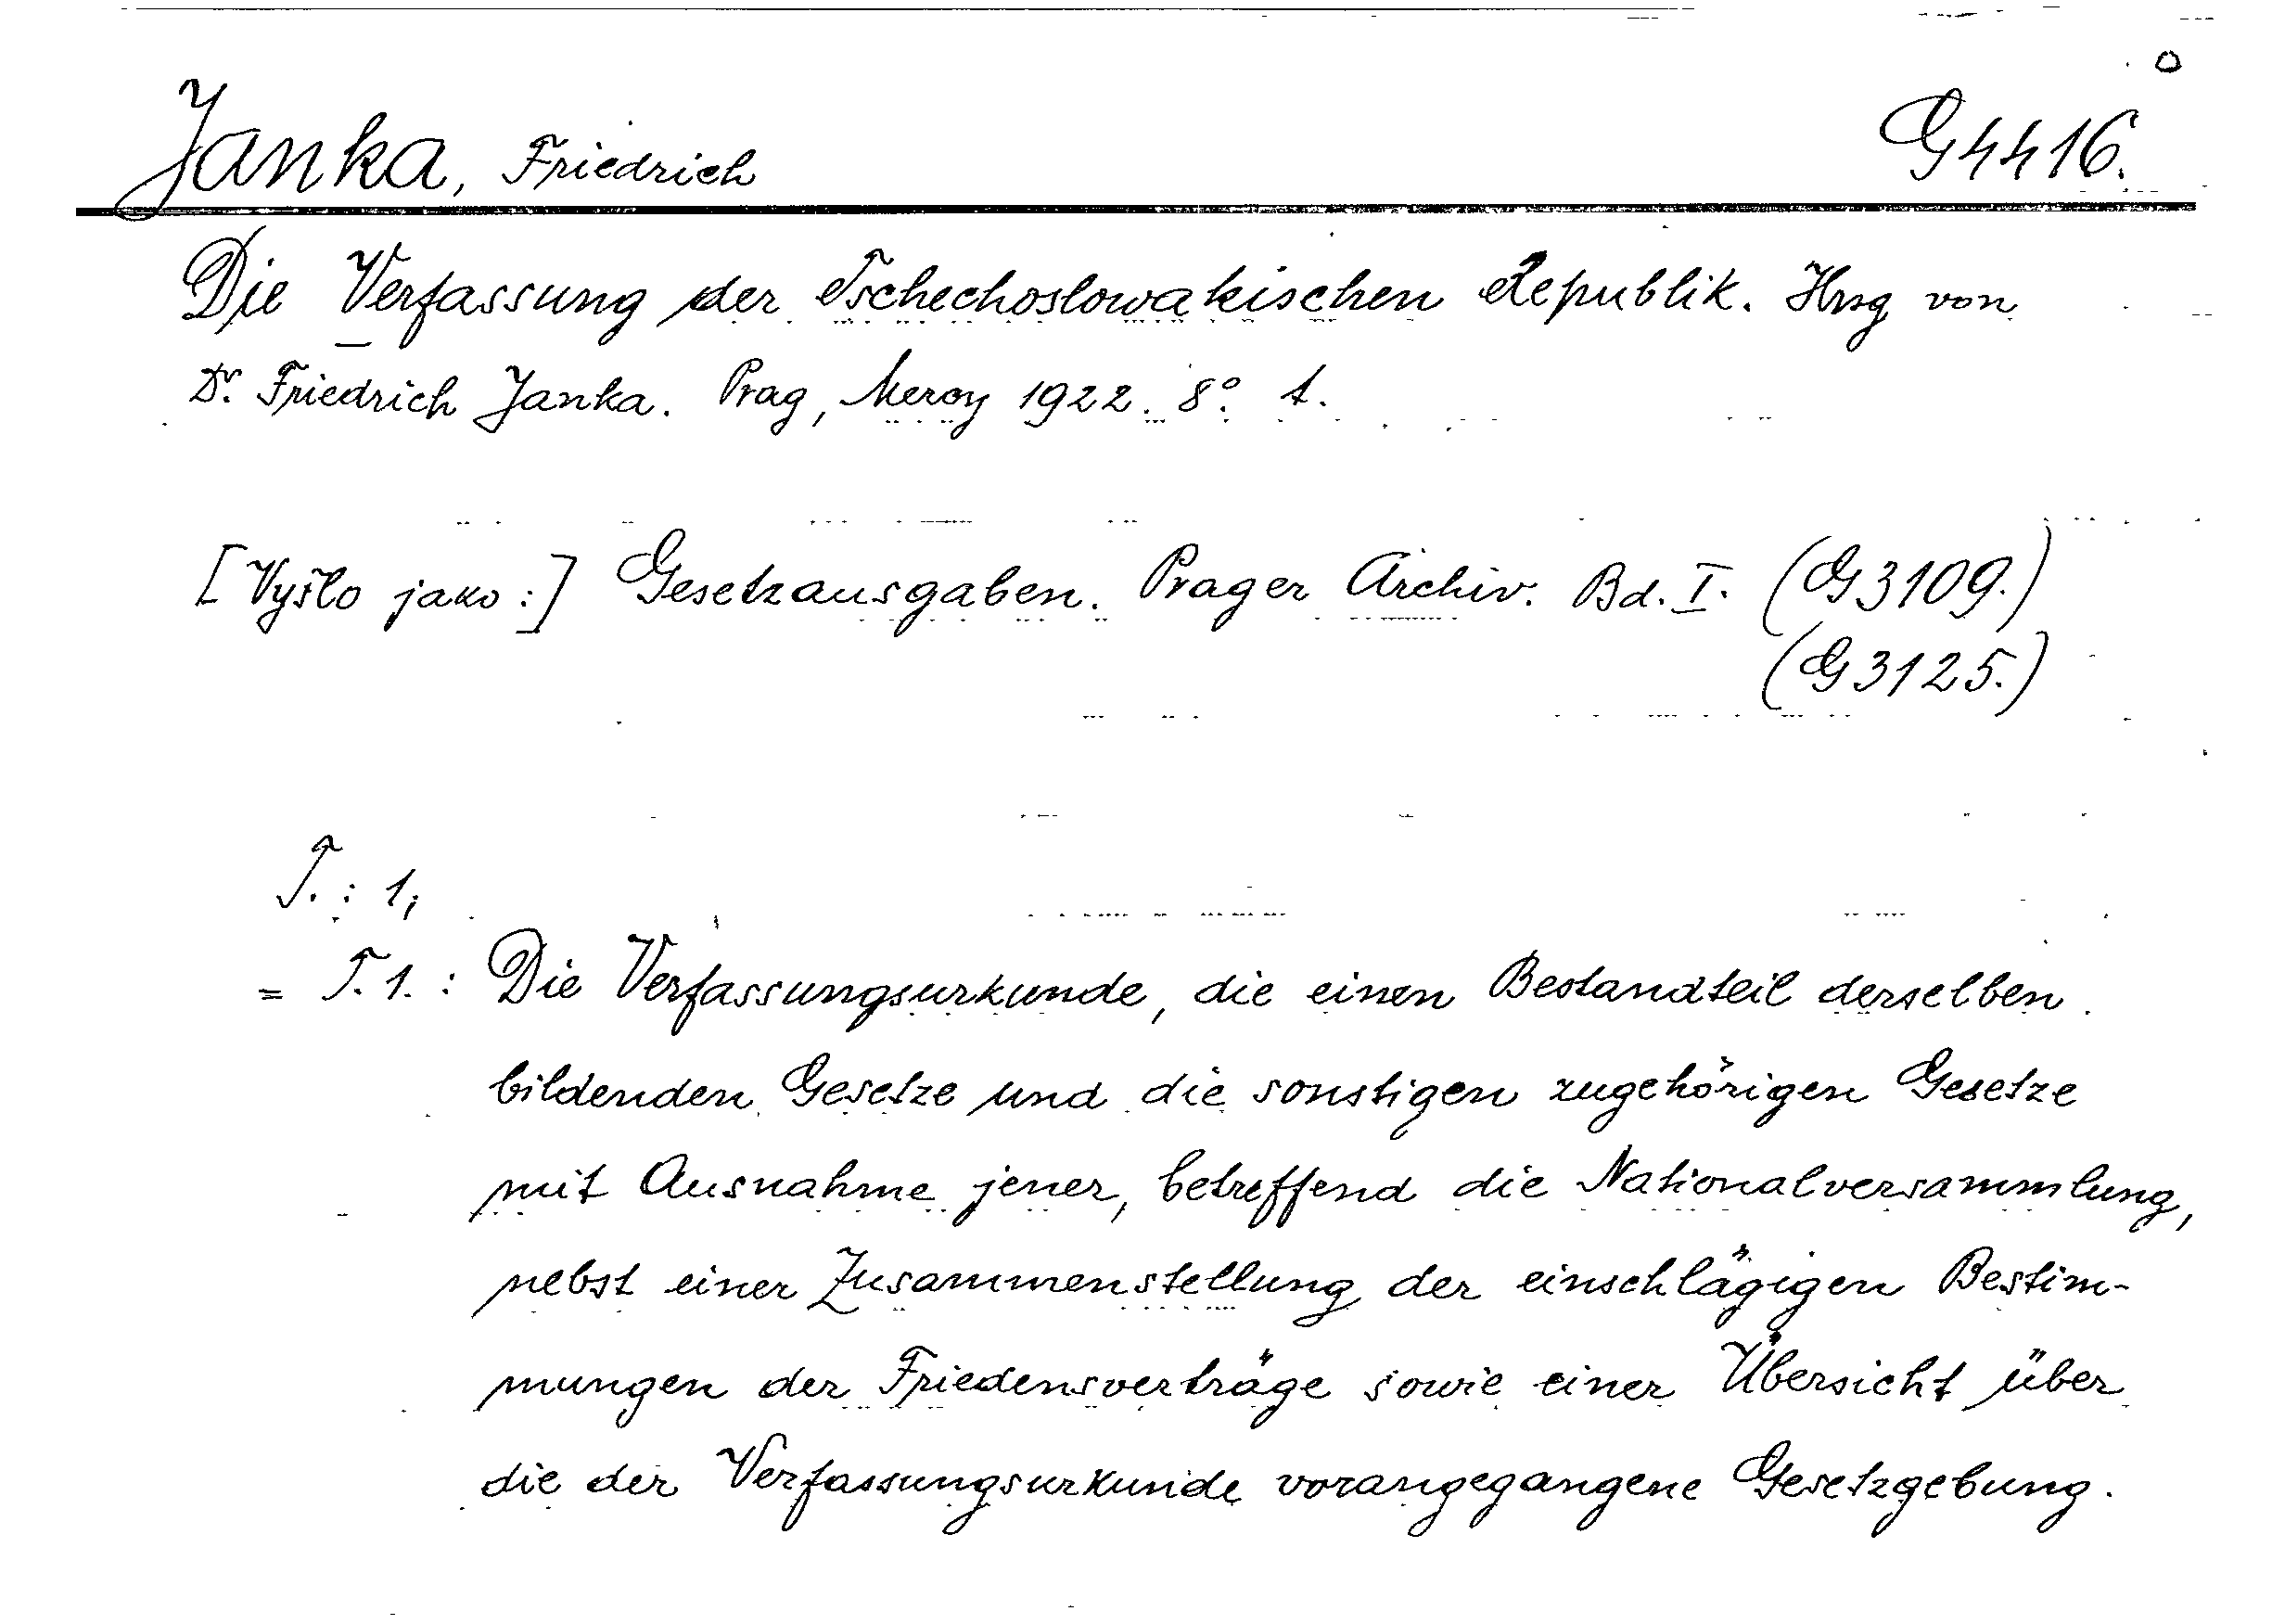 Janka, Friedrich G 4416.
Die Verfassung der Tschechoslowakischen Republik. Hrsg von
Dr. Friedrich Janka. Prag, Mercy 1922. 8° t.
[Vyšlo jako:] Gesetzausgaben. Prager Archiv. Bd. I. (G 3109.)
(G 3125.)
T. : 1,
= T. 1. : Die Verfassungsurkunde, die einen Bestandteil derselben
bildenden Gesetze und die sonstigen zugehörigen Gesetze
mit Ausnahme jener, betreffend die Nationalversammlung,
nebst einer Zusammenstellung der einschlägigen Bestim-
mungen der Friedensverträge sowie einer Übersicht über
die der Verfassungsurkunde vorangegangene Gesetzgebung.